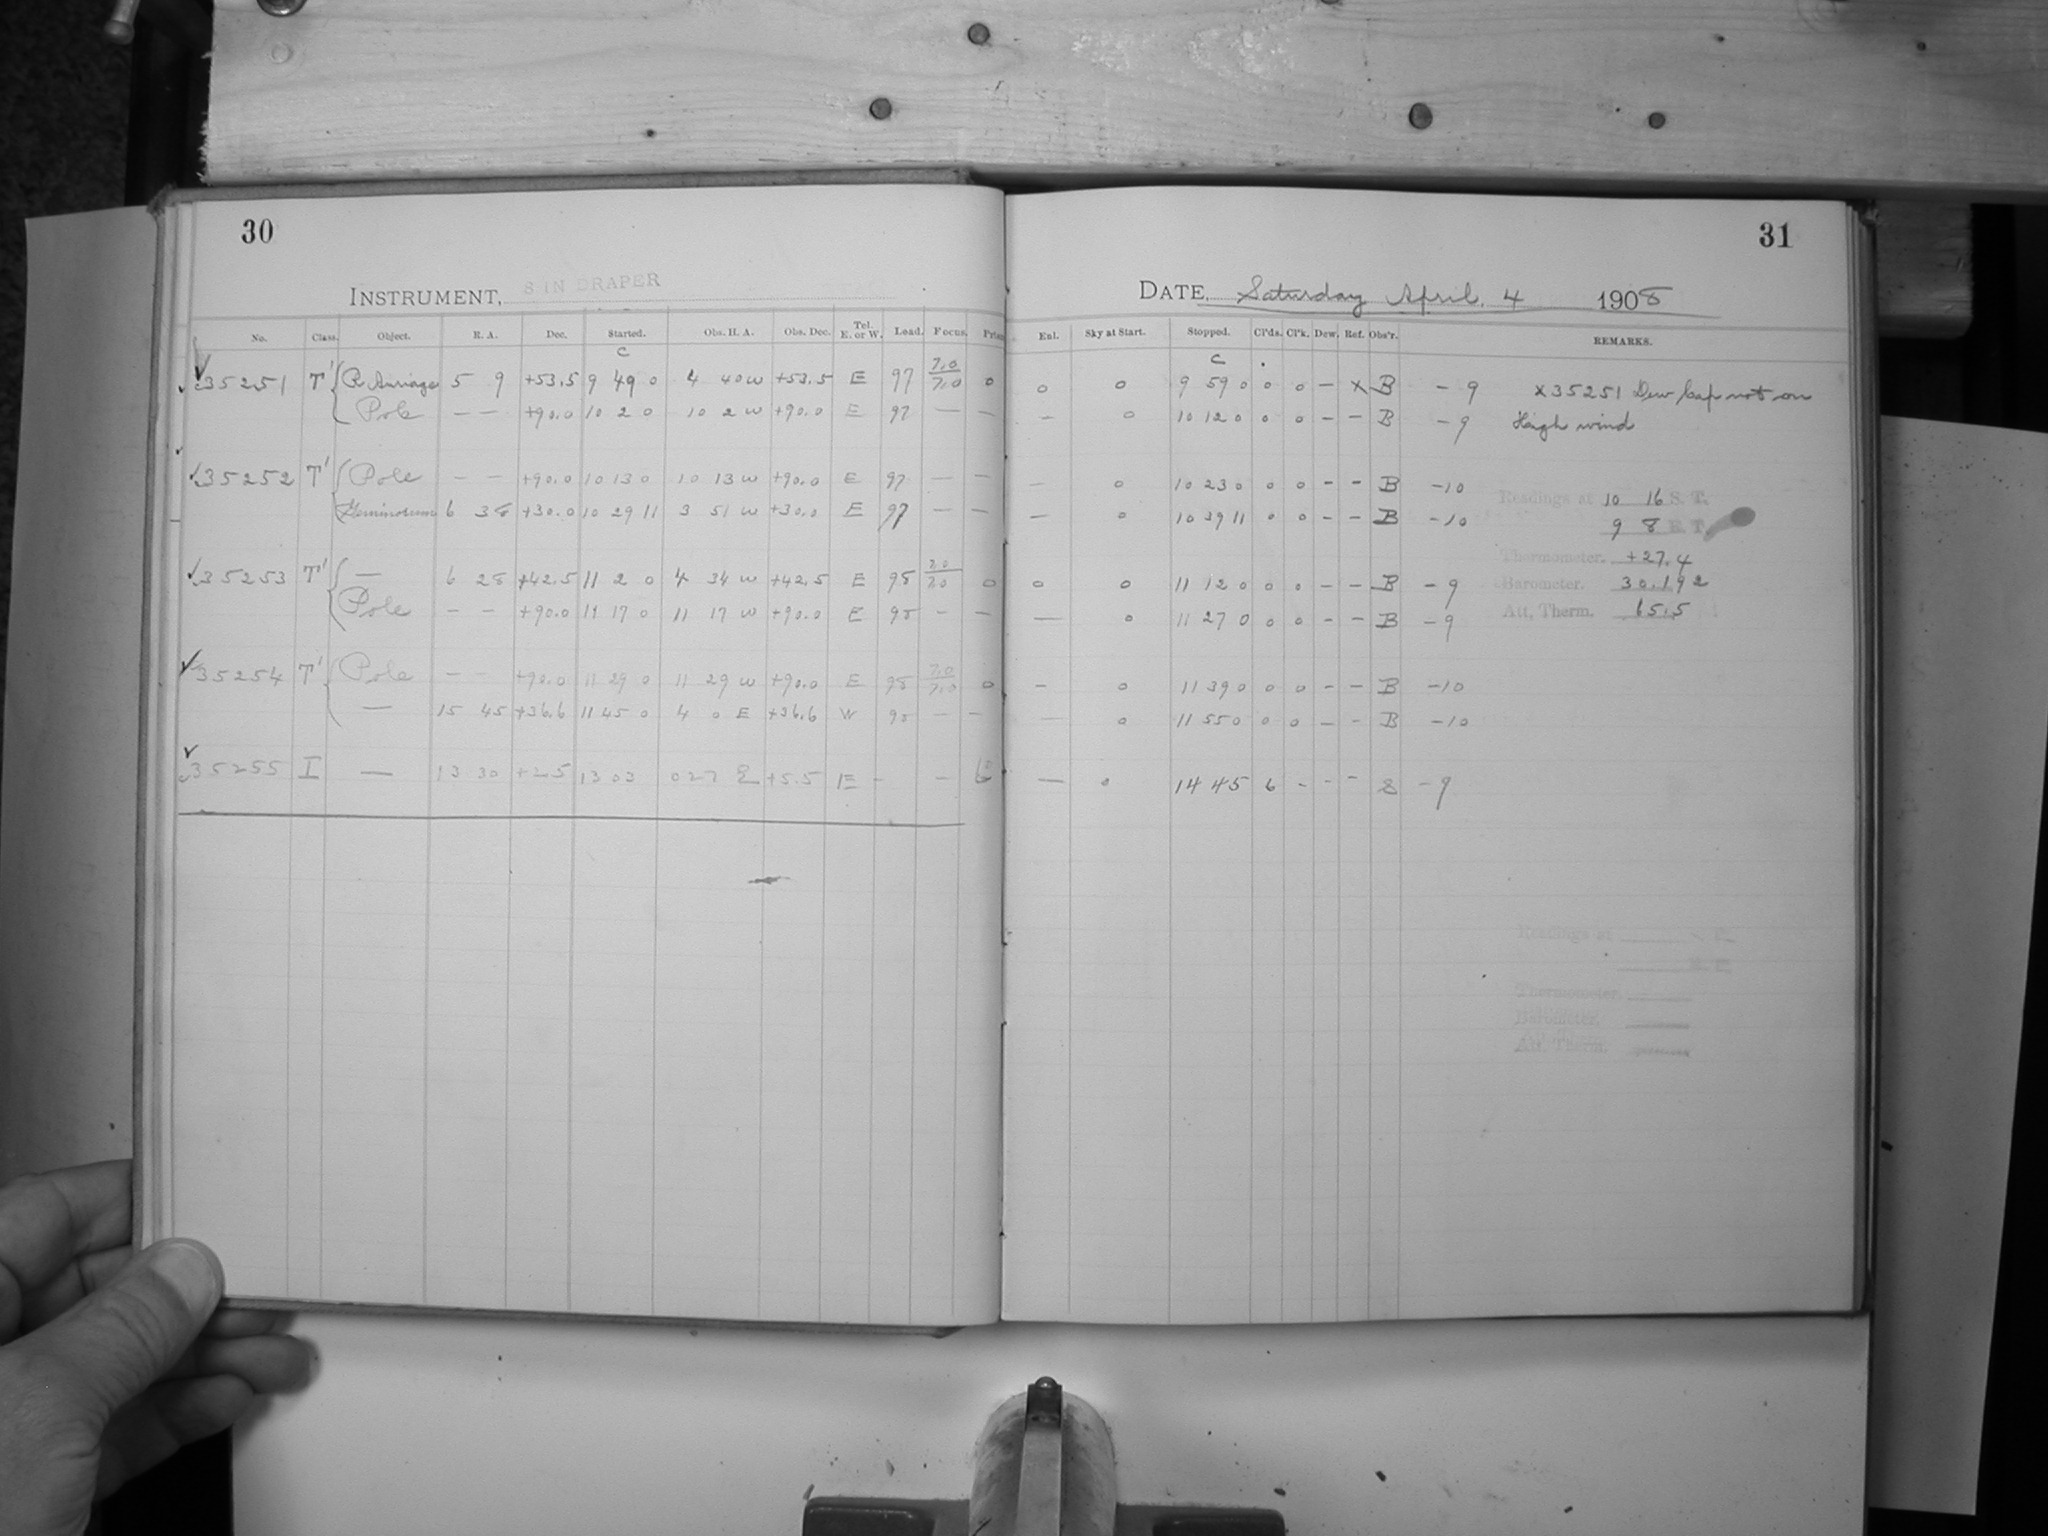 30
INSTRUMENT, 8 IN DRAPER
No. Class. Object. R. A. Dec. Started. Obs. H. A. Obs. Dec. Tel. E. or W. Load. Focus.
C
35251 T' R Aurigae 5 9 +53.5 9 49 0 4 40 W +53.5 E 97 7.0/7.0 0
Pole — — +90.0 10 2 0 10 2 W +90.0 E 97 — —
35252 T' Pole — — +90.0 10 13 0 10 13 W +90.0 E 97 — —
Geminorum 6 38 +30.0 10 29 11 3 51 W +30.0 E 97 — —
35253 T' — 6 28 +42.5 11 2 0 4 34 W +42.5 E 98 7.0/7.0 0
Pole — — +90.0 11 17 0 11 17 W +90.0 E 98 — —
35254 T' Pole — — +90.0 11 29 0 11 29 W +90.0 E 98 7.0/7.0 0
— 15 45 +36.6 11 45 0 4 0 E +36.6 W 98 — —
35255 I — 13 30 +2.5 13 03 0 27 E +5.5 E - —
31
DATE, Saturday April 4 1908
Enl. Sky at Start. Stopped. Cl'ds. Cl'k. Dew. Ref. Obs'r. REMARKS.
C
0 0 9 59 0 0 0 — X B - 9 X 35251 Dew Cap not on
— 0 10 12 0 0 0 — — B - 9 High wind
— 0 10 23 0 0 0 — — B -10 Readings at 10 16 S. T.
— 0 10 39 11 0 0 — — B -10 9 8 E. T.
Thermometer. +27.4
0 0 11 12 0 0 0 — — B - 9 Barometer. 30.192
— 0 11 27 0 0 0 — — B - 9 Att. Therm. 65.5
— 0 11 39 0 0 0 — — B -10
— 0 11 55 0 0 0 — — B -10
— 0 14 45 6 - - - S - 9
Readings at
Thermometer.
Barometer.
Att. Therm.